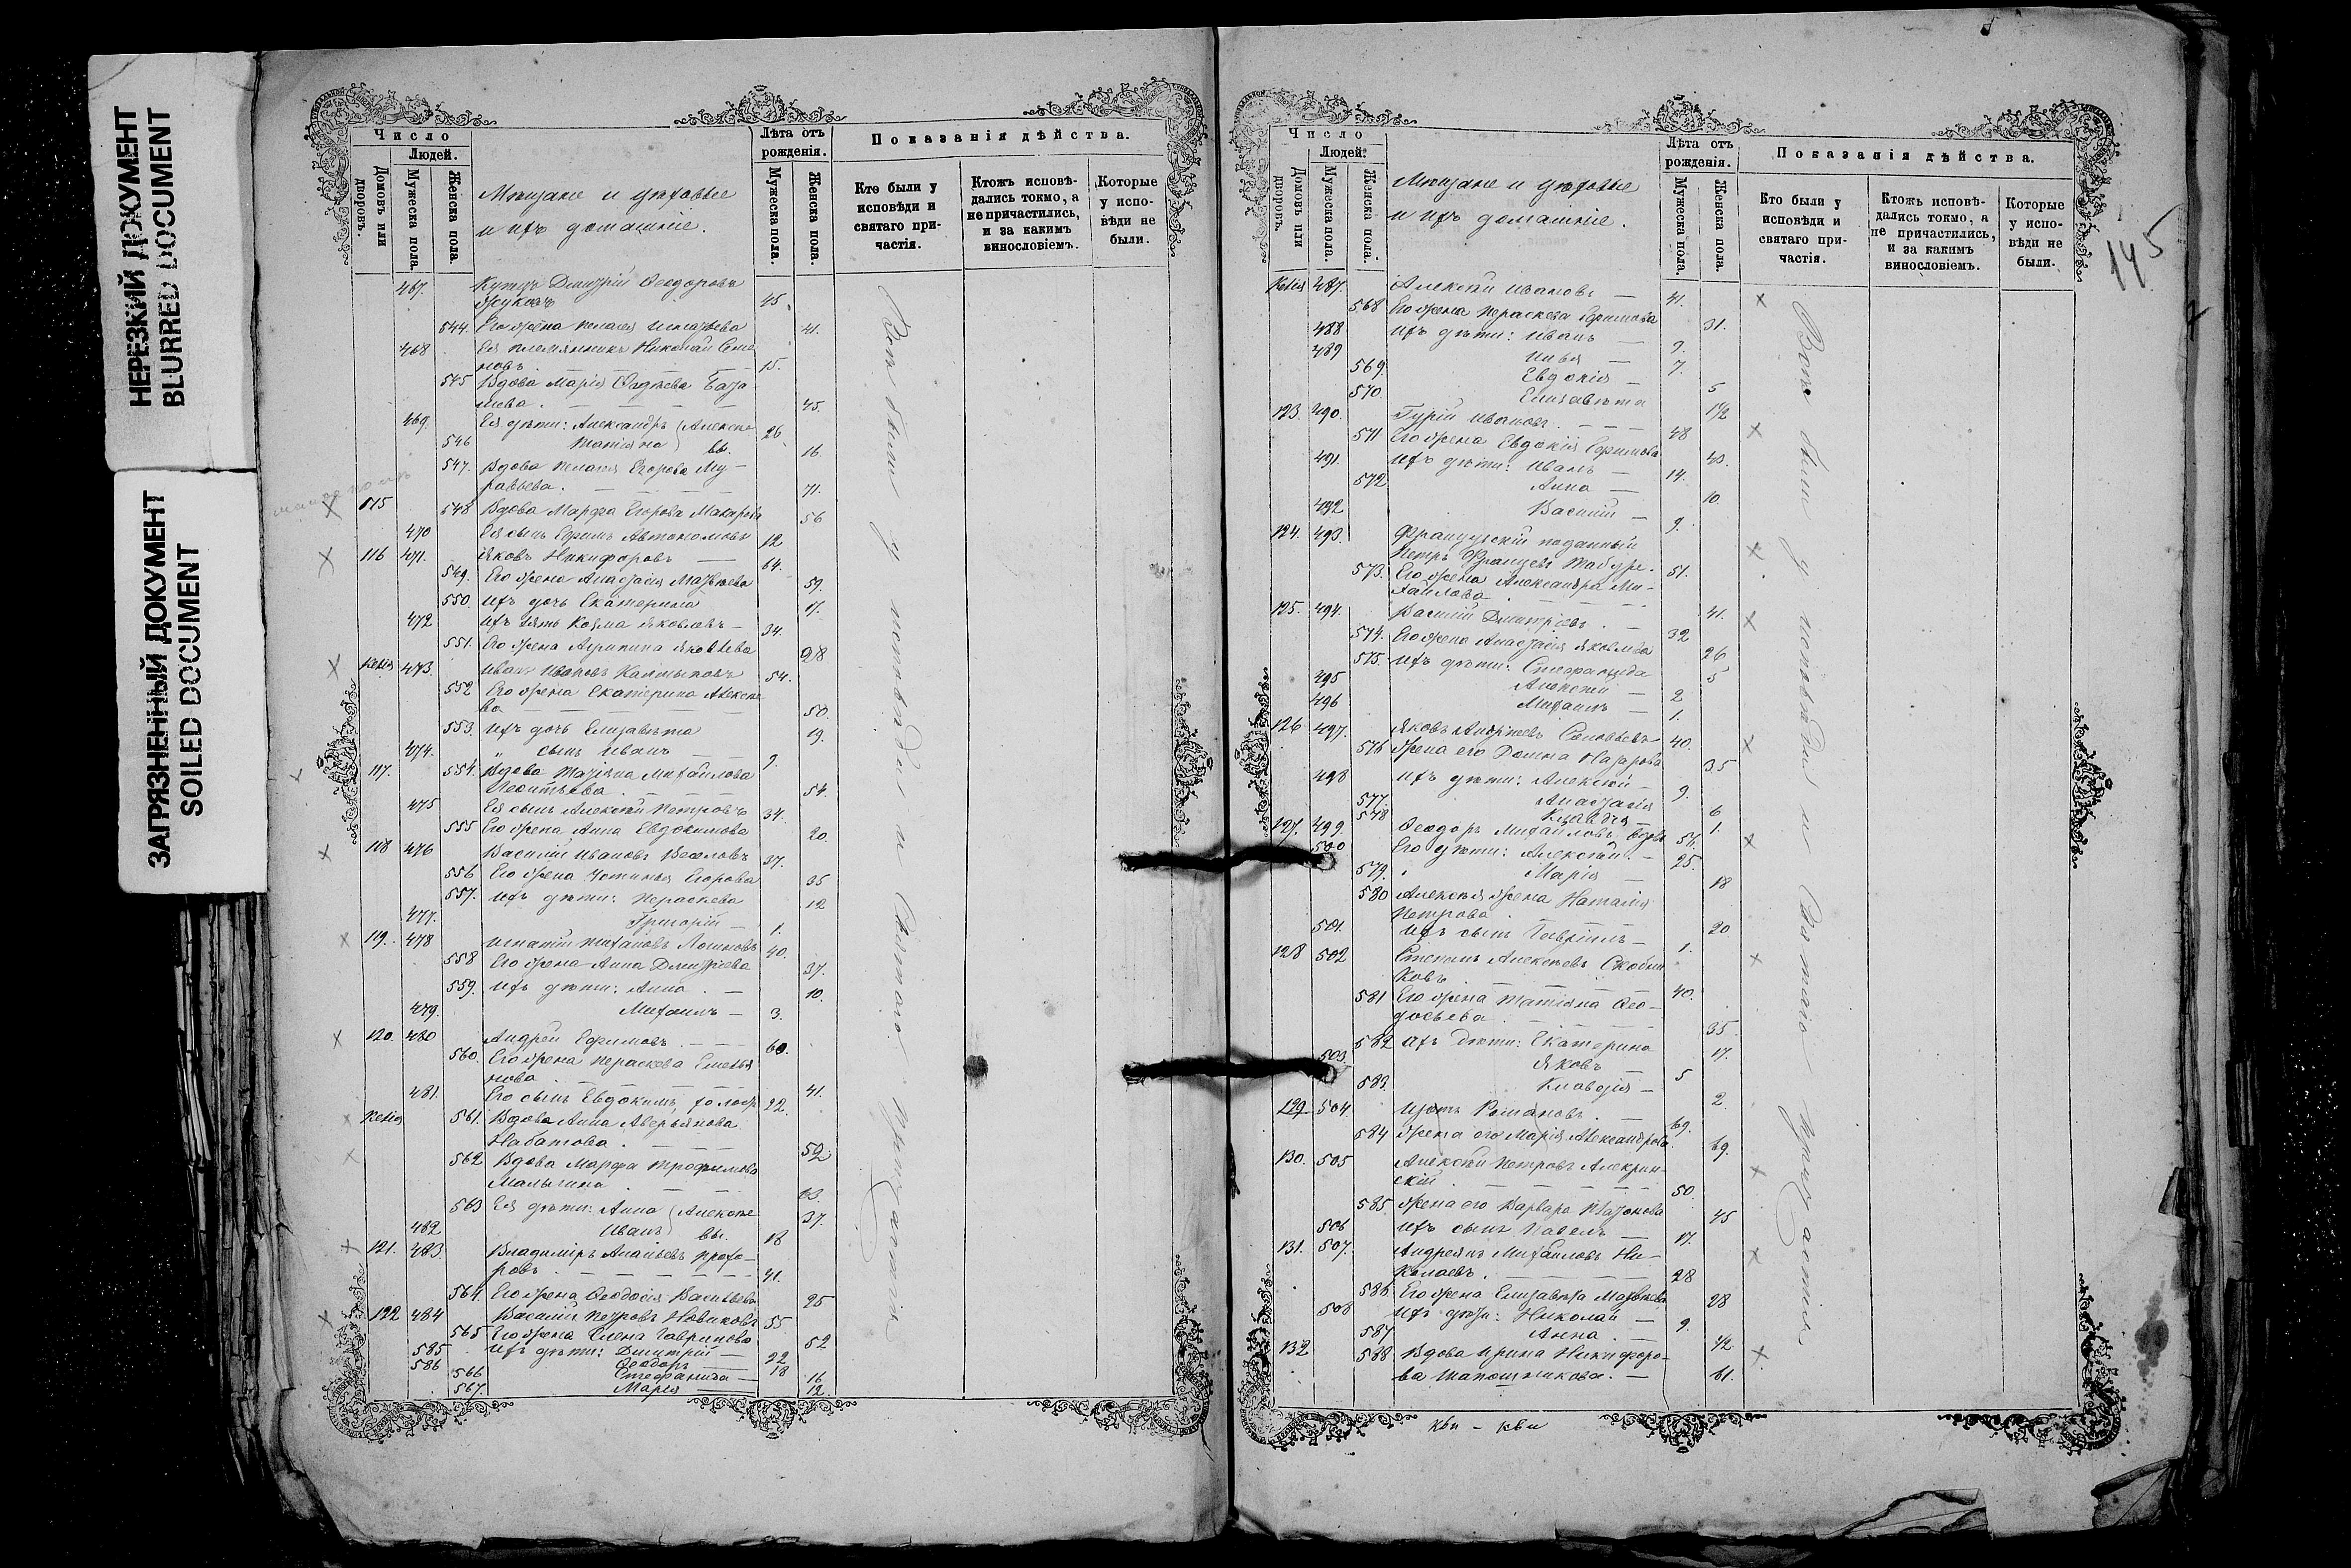 НЕРЕЗКИЙ ДОКУМЕНТ
BLURRED DOCUMENT
ЗАГРЯЗНЕННЫЙ ДОКУМЕНТ
SOILED DOCUMENT
Число
Людей.
Домовъ или дворовъ.
Мужеска пола.
Женска пола.
Мѣщане и цѣховые
и ихъ домашніе.
Лѣта отъ рожденія.
Мужеска пола.
Женска пола.
Показанія дѣйства.
Кто были у исповѣди и святаго причастія.
Ктожъ исповѣдались токмо, а не причастились, и за какимъ винословіемъ.
Которые у исповѣди не были.
467. Купецъ Дмитрій Ѳеодоровъ
Жуковъ 45.
544. Его жена Пелагія Игнатьева 41.
468 Ея племянникъ Николай Семе
новъ. 15.
545 Вдова Марія Ѳаддѣева
45.
469. Ея дѣти: Александръ (Алексѣе 26.
546 Татіана) вы. 16
547. Вдова Пелагія Егорова Му-
равьева. 71.
115 548 Вдова Марѳа Егорова Макарова 56
470 Ея сынъ Ефимъ Автономовъ 12
116 471. Яковъ Никифоровъ 64.
549. Его жена Анастасія Матвѣева 59.
550. Ихъ дочь Екатерина 17.
472 Ихъ зять Козма Яковлевъ 34.
551. Его жена Агрипина Яковлева 28
Келія 473. Иванъ Ивановъ Калмыковъ 54.
552 Его жена Екатерина Алексѣе
ва 50.
553. Ихъ дочь Елизавета 19.
474. " сынъ Иванъ 9.
117. 554. Вдова Татіана Михайлова
Леонтьева. 54.
475 Ея сынъ Алексѣй Петровъ 34.
555 Его жена Анна Евдокимова 20.
118 476 Василій Ивановъ Веселовъ 37.
556 Его жена Устинья Егорова 35
557. Ихъ дѣти: Пераскева 12
477. Григорій 1.
119. 478 Игнатій Логиновъ 40.
558 Его жена Анна Дмитріева 37.
559. Ихъ дѣти: Анна. 10.
479. Михаилъ 3.
120. 480 Андрей Ефимовъ. 60.
560. Его жена Пераскева Емелья
нова. 41.
481. Его сынъ Евдокимъ, холост. 22.
Келія 561. Вдова Анна Аверьянова
Набатова. 52
562 Вдова Марѳа Трофимова
Малыгина. 63.
563 Ея дѣти: Анна (Алексѣе 37.
482 Иванъ) вы. 18
121. 483. Владиміръ Ананьевъ Прохо-
ровъ. 41.
564. Его жена Ѳеодосія Васильева 25
122 484 Василій Петровъ Новиковъ 55.
565 Его жена Елена Гаврилова 52
585 Ихъ дѣти: Дмитрій 22
586 Ѳеодоръ 18
566 Стефанида 16
567. Марія 12.
Всѣ были у исповѣди и Святаго Причастія
Число
Людей.
Домовъ или дворовъ.
Мужеска пола.
Женска пола.
Мѣщане и цѣховые
и ихъ домашніе.
Лѣта отъ рожденія.
Мужеска пола.
Женска пола.
Показанія дѣйства.
Кто были у исповѣди и святаго причастія.
Ктожъ исповѣдались токмо, а не причастились, и за какимъ винословіемъ.
Которые у исповѣди не были.
145
Келія 487. Алексѣй Ивановъ 41.
568 Его жена Пераскева Ефимова 31.
488 Ихъ дѣти: Иванъ 9.
489 Илья 7.
569. Евдокія 5
570. Елизавета 1½
123. 490. Гурій Ивановъ. 48
571 Его жена Евдокія Ефимова 40.
491. Ихъ дѣти: Иванъ 14.
572 Анна 10.
492 Василій 9.
124. 493. Французскій подданный
Петръ Францевъ 51.
573. Его жена Александра Ми-
хайлова. 41.
125. 494. Василій Дмитріевъ. 32
574. Его жена Анастасія Яковлева 26
575. Ихъ дѣти: Стефанида 5
495 Алексѣй 2
496 Михаилъ 1.
126 497. Яковъ Андреевъ Соловьевъ 40.
576 Жена его Домна Назарова 35
498 Ихъ дѣти: Алексѣй 9.
577. Анастасія 6
578 Клавдія 1.
127. 499. Ѳеодоръ Михайловъ, вдовъ 51.
500 Его дѣти: Алексѣй. 25.
579. Марія 18
580 Алексѣя жена Наталія
Петрова. 20
501. Ихъ сынъ Гавріилъ 1.
128 502 Степанъ Алексѣевъ
ковъ 40.
581 Его жена Татіана Ѳео-
досьева. 35.
582 Ихъ дѣти: Екатерина 17.
503. Яковъ 5
583. Клавдія 2.
129 504. Романовъ. 69.
584 Жена его Марія Александрова 69.
130. 505 Алексѣй Петровъ Алекрин-
скій. 50.
585 Жена его Варвара Платонова 45
506 Ихъ сынъ Павелъ 17.
131. 507. Андреянъ Михайловъ Ни-
колаевъ. 28
586 Его жена Елизавета Матвѣева 28
508 Ихъ дѣти: Николай 9.
587 Анна. ½
132 588 Вдова Ирина Никифоро-
ва Шапошникова. 61.
Всѣ были у исповѣди и Святаго Причастія